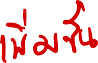 เพิ่มขึ้น